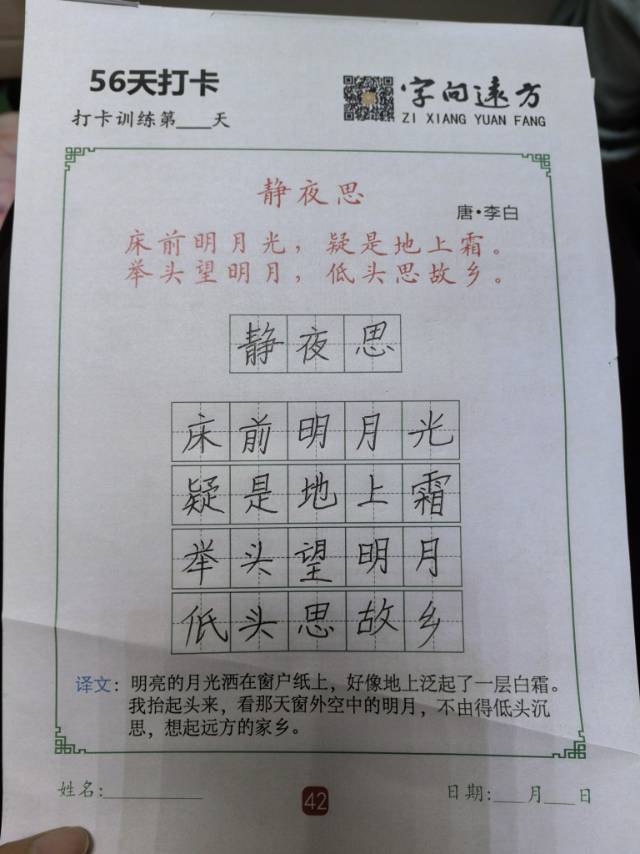 56天打卡
打卡训练第___天
字向远方
ZI XIANG YUAN FANG
静夜思
唐·李白
床前明月光，疑是地上霜。
举头望明月，低头思故乡。
静夜思
床前明月光
疑是地上霜
举头望明月
低头思故乡
译文：明亮的月光洒在窗户纸上，好像地上泛起了一层白霜。
我抬起头来，看那天窗外空中的明月，不由得低头沉
思，想起远方的家乡。
姓名:__________
42
日期:___月___日